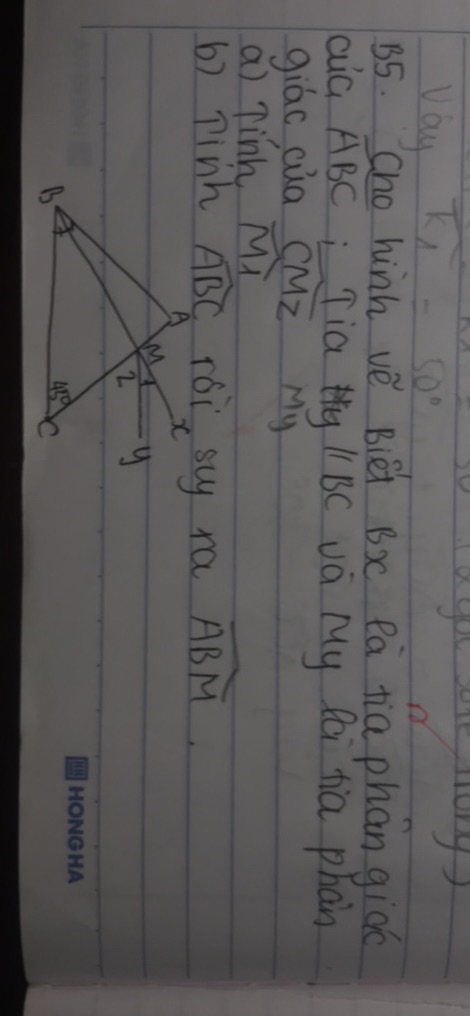 Vậy K₁ = 50°
B5. Cho hình vẽ Biết Bx là tia phân giác
của ABC ; Tia My // BC và My là tia phân
giác của CMx
My
a) Tính M1
b) Tính ABC rồi suy ra ABM.
A
x
M
1
2
y
B
45°
C
HONG HA